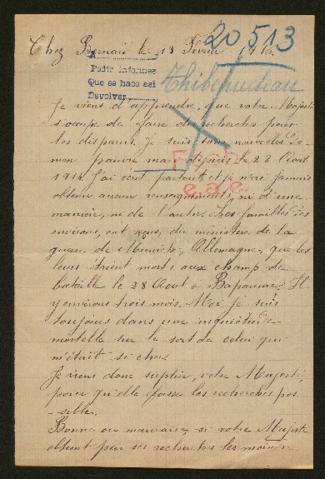 20513
le 18 Février
Pedir informes
Que se hace así
Devolver
Thibehudeau
Je viens d'apprendre, que votre Majesté
s'occupe de faire des recherches pour
les disparus. Je suis sans nouvelles de
mon pauvre mari disparus le 28 Août
1914. J'ai écrit partout et je n'ai jamais
obtenu aucun renseignement, ni d'une
manière, ni de l'autre. Des familles des
environs, ont reçus, du ministère de la
guerre de Munich, Allemagne, que les
leurs étaient morts, aux champ de
bataille le 28 Août à Bapaume. Il
y environs trois mois. Moi je suis
toujours dans une inquiétude
mortelle sur le sort de celui qui
m'était si cher.
Je viens donc suplier, votre Majesté,
pour qu'elle fasse les recherches pos
-sible.
Bonne ou mauvaise, si votre Majesté
obtient par ses recherches les moindre